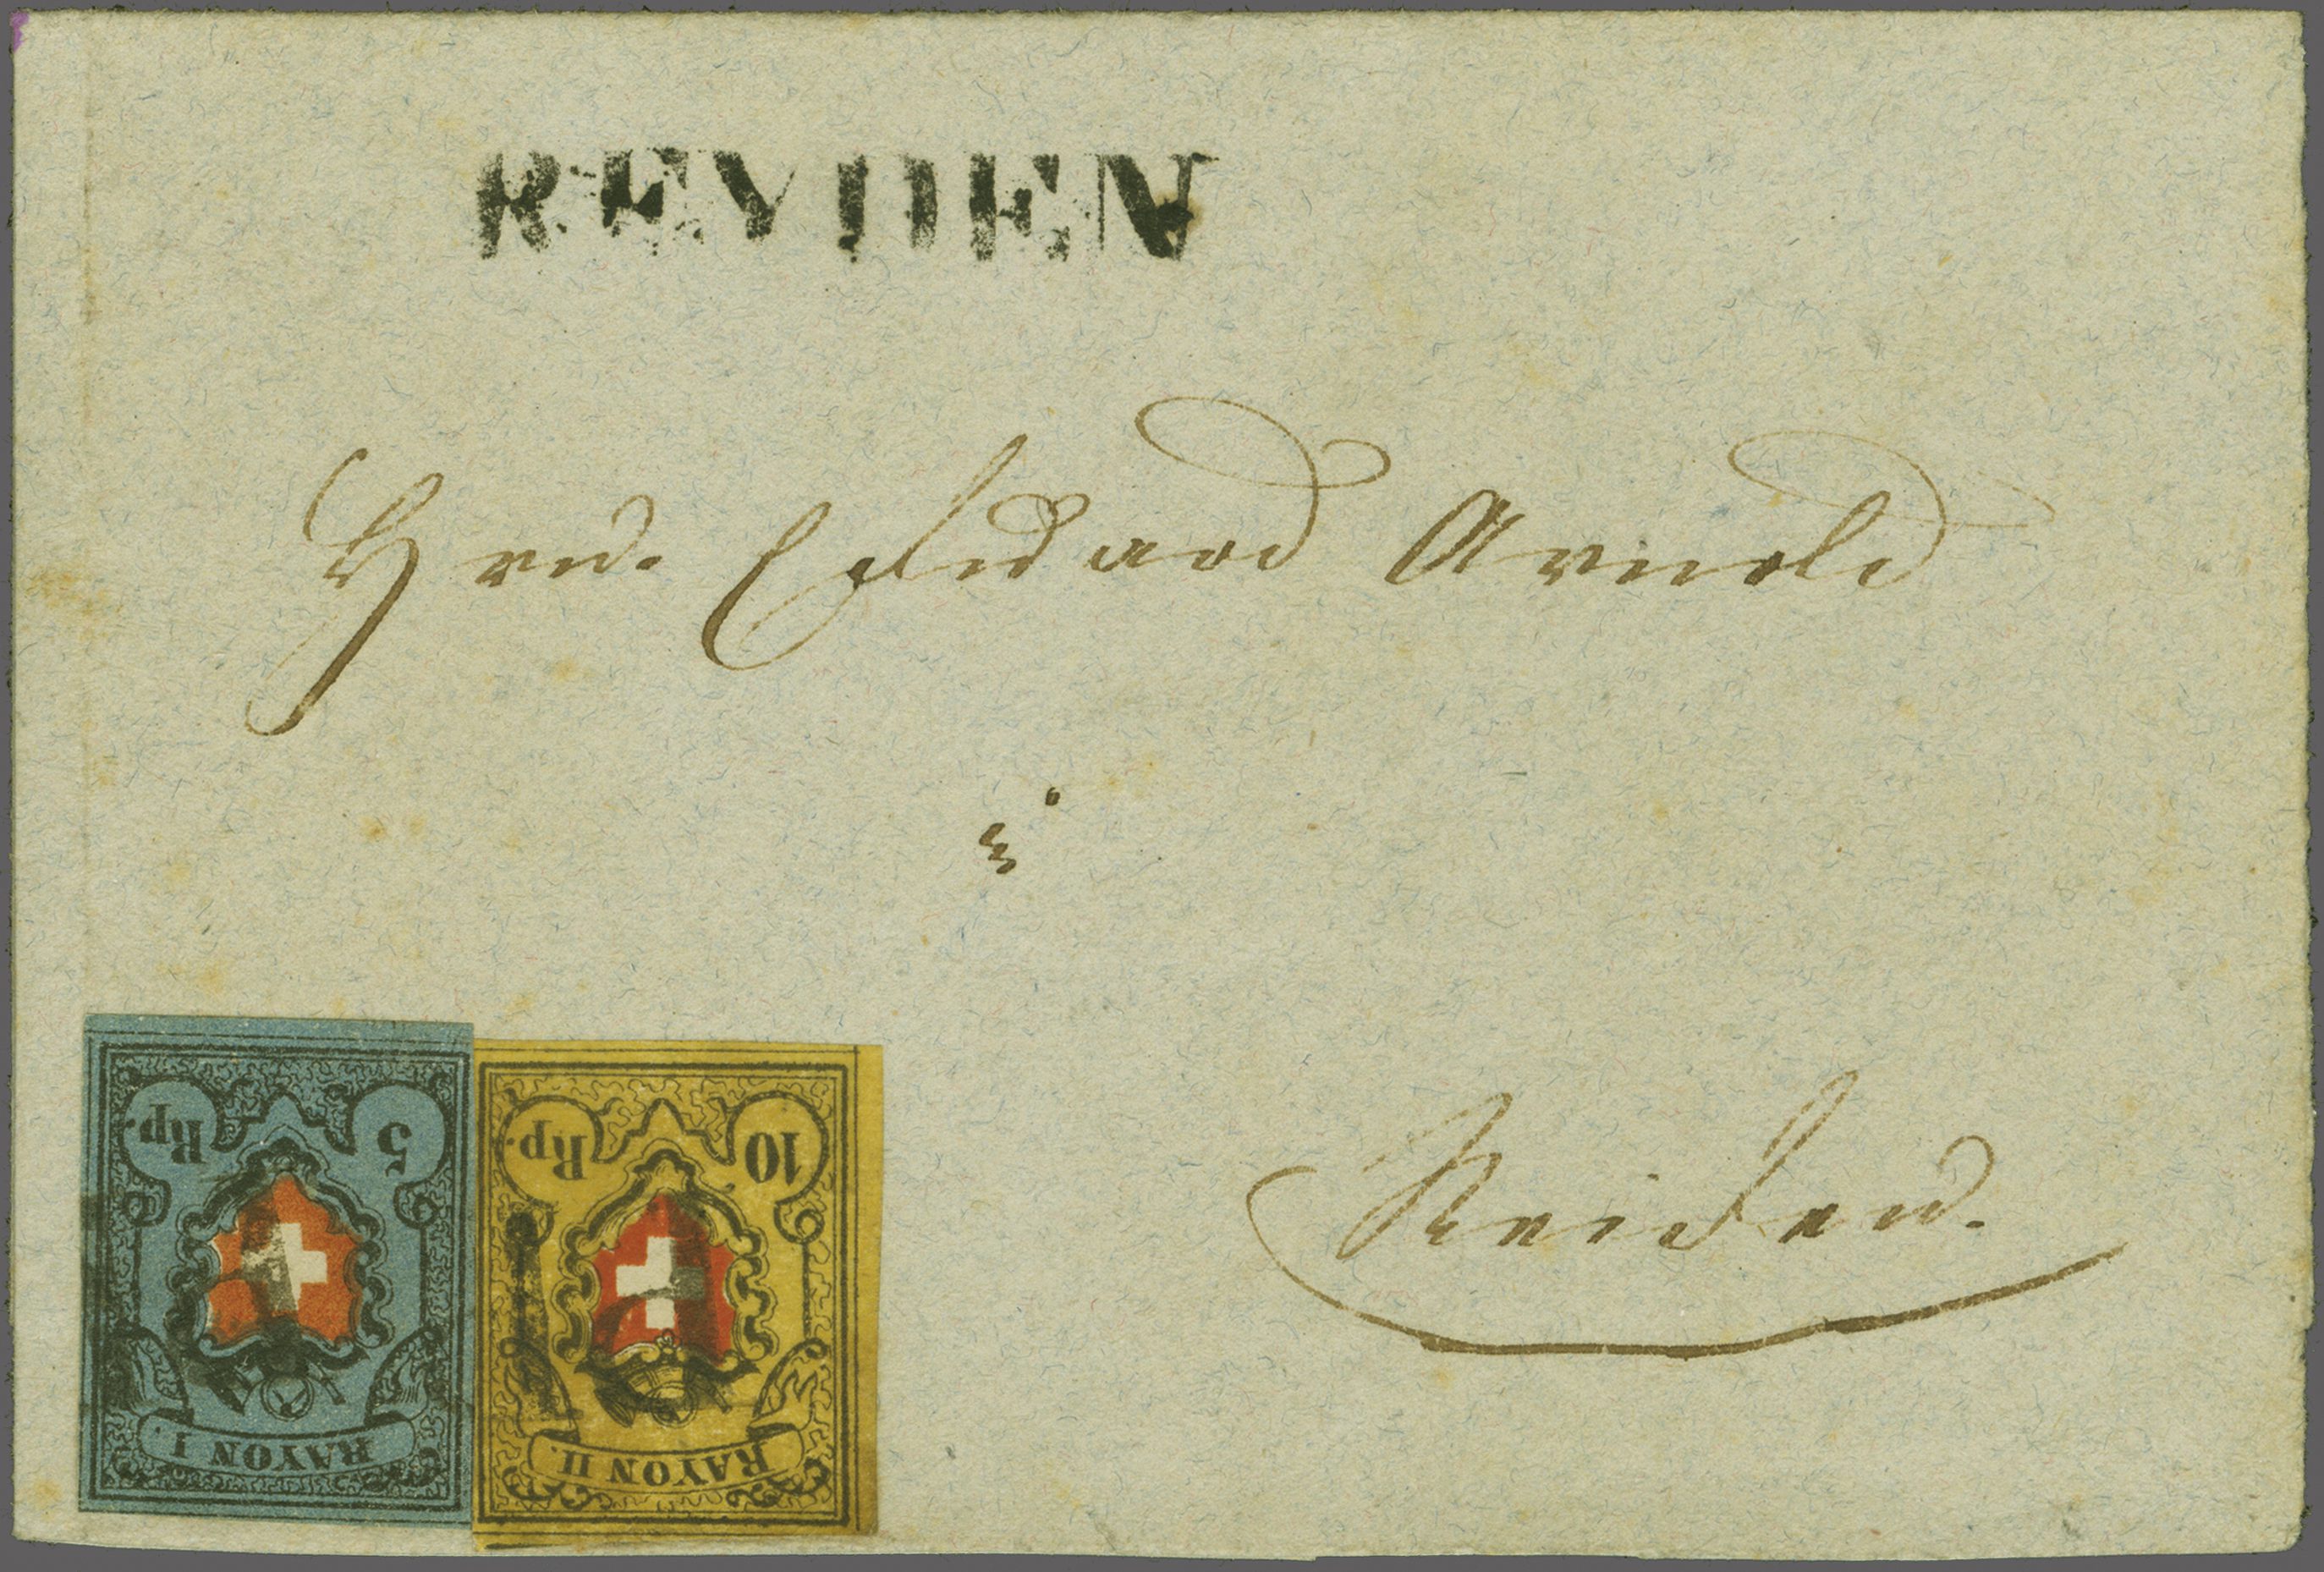 REYDEN
Hrn. Eduard Arnold
in
Reiden.
5 Rp.
RAYON I.
10 Rp.
RAYON II.